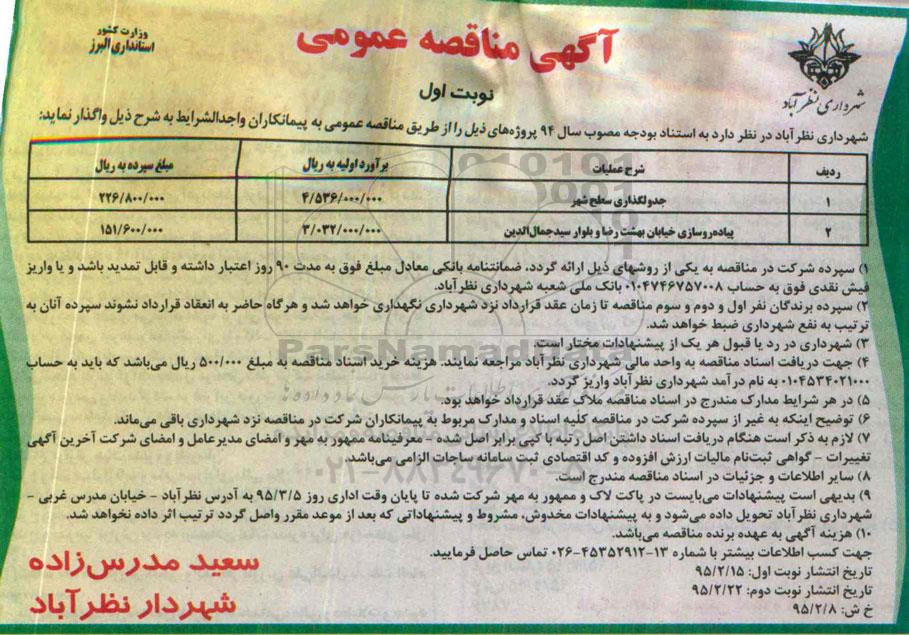 وزارت کشور
استانداری البرز
آگهی مناقصه عمومی
شهرداری نظرآباد
نوبت اول
شهرداری نظرآباد در نظر دارد به استناد بودجه مصوب سال ۹۴ پروژه‌های ذیل را از طریق مناقصه عمومی به پیمانکاران واجدالشرایط به شرح ذیل واگذار نماید:
ردیف شرح عملیات برآورد اولیه به ریال مبلغ سپرده به ریال
۱ جدولگذاری سطح شهر ۴/۵۳۶/۰۰۰/۰۰۰ ۲۲۶/۸۰۰/۰۰۰
۲ پیاده‌روسازی خیابان بهشت رضا و بلوار سیدجمال‌الدین ۳/۰۳۲/۰۰۰/۰۰۰ ۱۵۱/۶۰۰/۰۰۰
۱) سپرده شرکت در مناقصه به یکی از روشهای ذیل ارائه گردد، ضمانتنامه بانکی معادل مبلغ فوق به مدت ۹۰ روز اعتبار داشته و قابل تمدید باشد و یا واریز
فیش نقدی فوق به حساب ۰۱۰۴۷۴۶۷۵۷۰۰۸ بانک ملی شعبه شهرداری نظرآباد.
۲) سپرده برندگان نفر اول و دوم و سوم مناقصه تا زمان عقد قرارداد نزد شهرداری نگهداری خواهد شد و هرگاه حاضر به انعقاد قرارداد نشوند سپرده آنان به
ترتیب به نفع شهرداری ضبط خواهد شد.
۳) شهرداری در رد یا قبول هر یک از پیشنهادات مختار است.
ParsNamadData
۴) جهت دریافت اسناد مناقصه به واحد مالی شهرداری نظرآباد مراجعه نمایند. هزینه خرید اسناد مناقصه به مبلغ ۵۰۰/۰۰۰ ریال می‌باشد که باید به حساب
۰۱۰۴۵۳۴۰۲۱۰۰۰ به نام درآمد شهرداری نظرآباد واریز گردد.
۵) در هر شرایط مدارک مندرج در اسناد مناقصه ملاک عقد قرارداد خواهد بود.
۶) توضیح اینکه به غیر از سپرده شرکت در مناقصه کلیه اسناد و مدارک مربوط به پیمانکاران شرکت در مناقصه نزد شهرداری باقی می‌ماند.
۷) لازم به ذکر است هنگام دریافت اسناد داشتن اصل رتبه با کپی برابر اصل شده - معرفینامه ممهور به مهر و امضای مدیرعامل و امضای شرکت آخرین آگهی
تغییرات - گواهی ثبت‌نام مالیات ارزش افزوده و کد اقتصادی ثبت سامانه ساجات الزامی می‌باشد.
۰۲۱-۸۸۳۴۹۶۷۰-۵
۸) سایر اطلاعات و جزئیات در اسناد مناقصه مندرج است.
۹) بدیهی است پیشنهادات می‌بایست در پاکت لاک و ممهور به مهر شرکت شده تا پایان وقت اداری روز ۹۵/۳/۵ به آدرس نظرآباد - خیابان مدرس غربی -
شهرداری نظرآباد تحویل داده می‌شود و به پیشنهادات مخدوش، مشروط و پیشنهاداتی که بعد از موعد مقرر واصل گردد ترتیب اثر داده نخواهد شد.
۱۰) هزینه آگهی به عهده برنده مناقصه می‌باشد.
جهت کسب اطلاعات بیشتر با شماره ۱۳-۴۵۳۵۲۹۱۲-۰۲۶ تماس حاصل فرمایید.
تاریخ انتشار نوبت اول: ۹۵/۲/۱۵
تاریخ انتشار نوبت دوم: ۹۵/۲/۲۲
خ ش: ۹۵/۲/۸
سعید مدرس‌زاده
شهردار نظرآباد